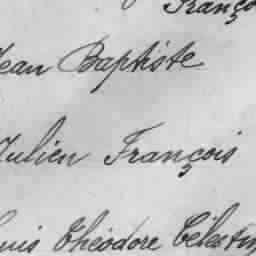 Franço
Jean Baptiste
Julien François
ouis Théodore Célestin